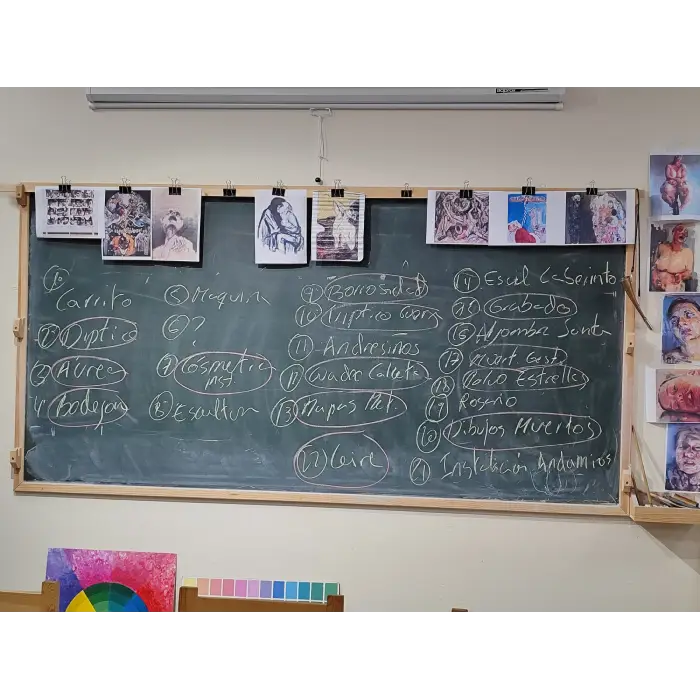 1º Carrito
2º Diptico
3 Aurea
4 Bodegon
5 Maquina
6 ?
7 Cosmetic
inst
8 Escultura
9 Borrosidad
10 Triptico
11 Andresiños
12 Cuadro
13 Mapas Met.
22 Leire
14 Escul Laberinto
15 Grabado
16 Alfombra Santa
17 Gest
18 Polvo Estrella
19 Rosario
20 Dibujos Muertos
21 Instalación Andamios